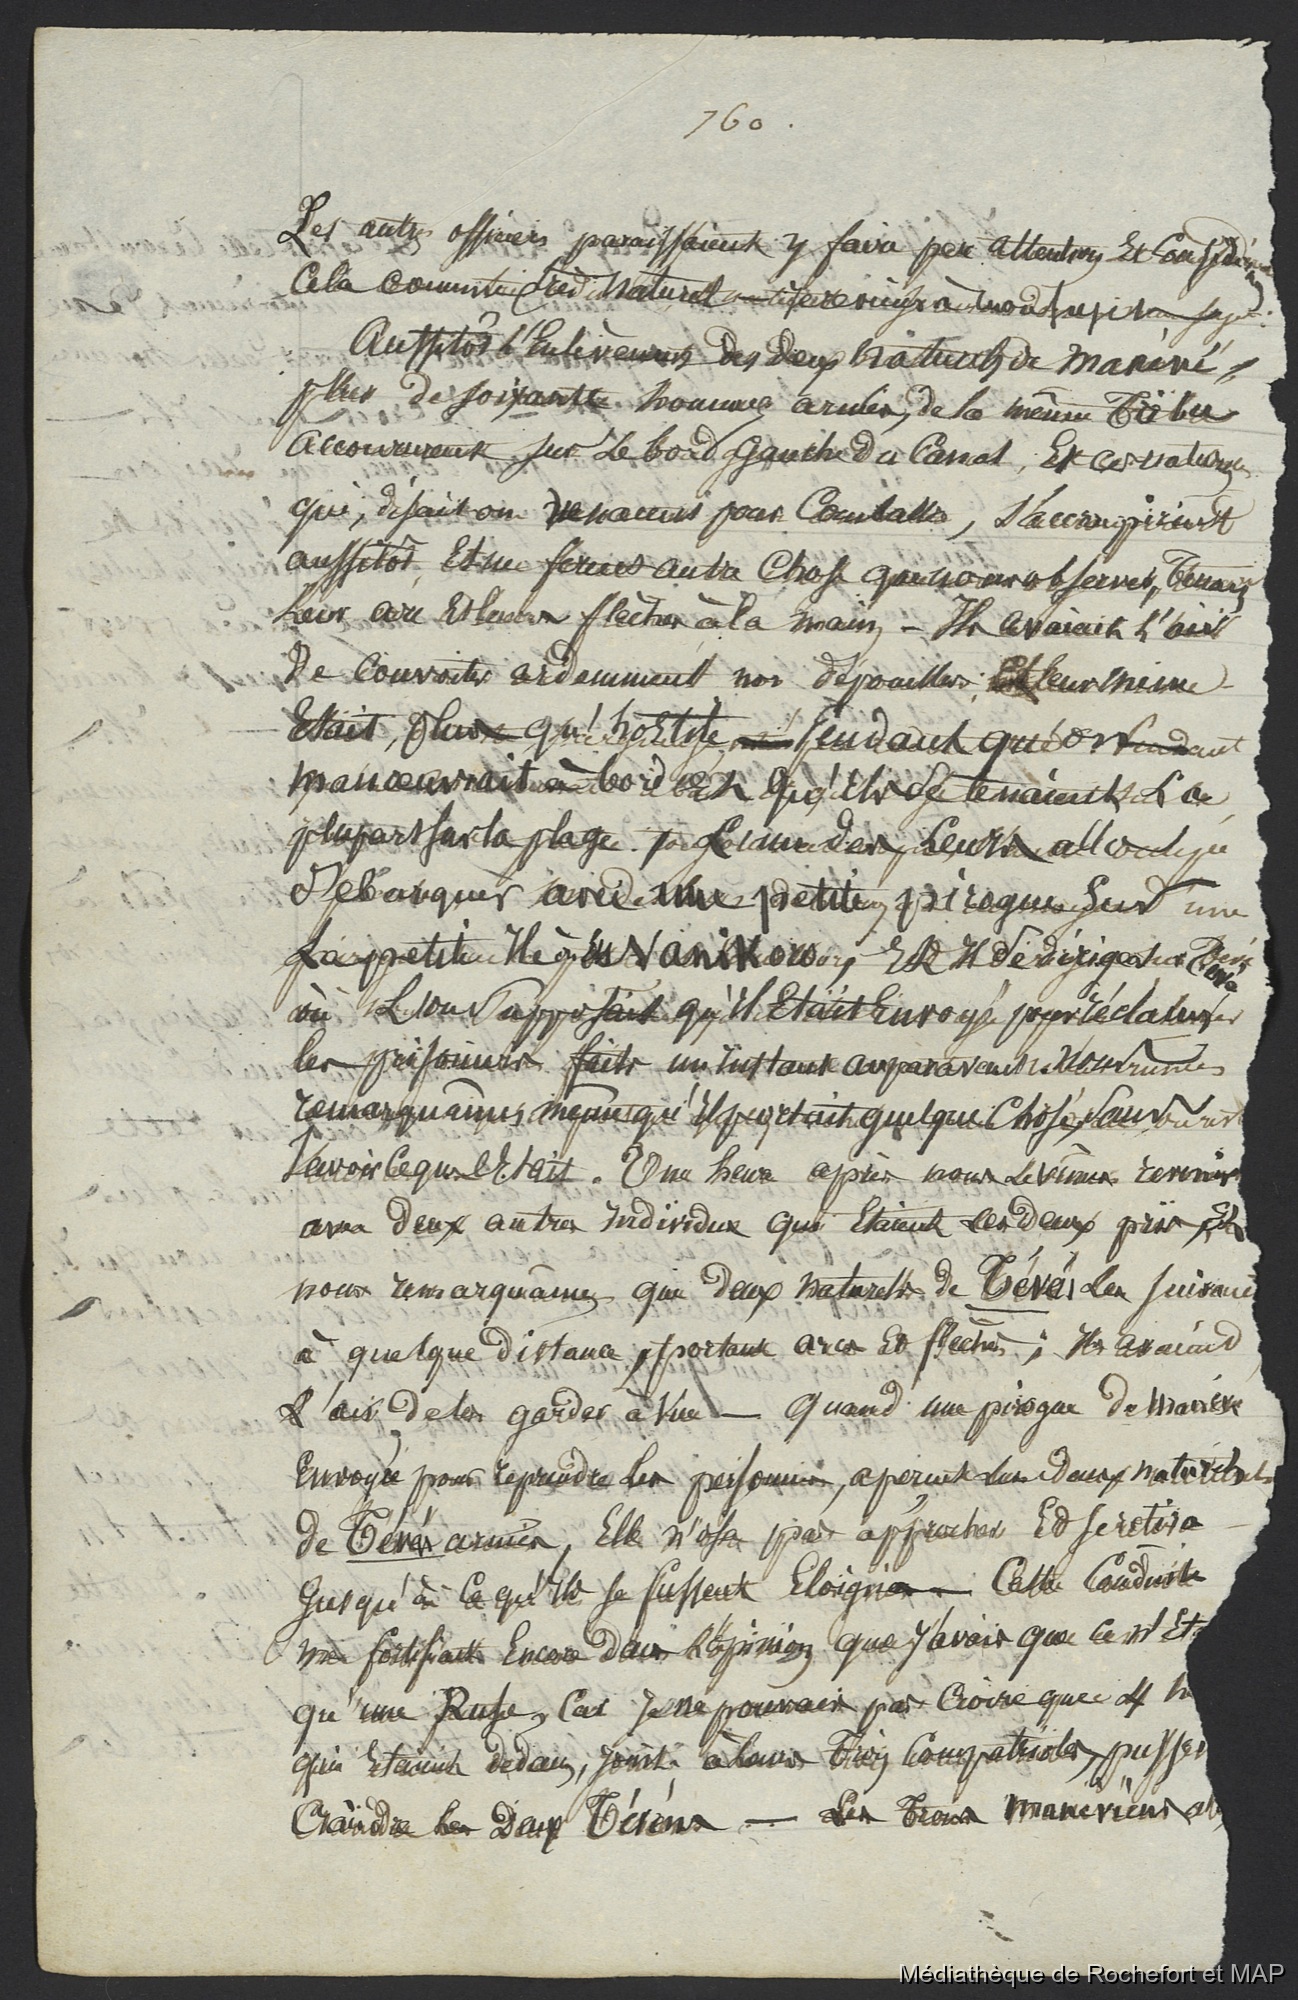 760.
Les autres officiers paraissaient y faire peu attention Et Considérant
Cela comme très Naturel
Aussitôt l'Enlèvement des deux naturels de Manévé,
plus de soixante hommes armés, de la même Tribu
accoururent sur Le bord gauche du Canal, Et ces naturels
qui, disait on venaient pour Combattre, s'accroupirent
aussitôt, Et ne firent autre Chose que nous observer, Tenant
Leur arc Et leurs flèches à la main – Ils avaient L'air
De Convoiter ardemment nos dépouilles; Et leur mine
Etait, plus qu'hostile pendant qu'on
manœuvrait à bord Et qu'ils se tenaient La
plupart sur la plage. L'un des Leurs alla
débarquer avec une petite pirogue Sur une
petite Ile Vanikoro, Et Il se dirigea sur Tévé
où L'on supposait qu'Il Etait Envoyé pour réclamer
les prisonniers faits un instant auparavant. Nous
remarquâmes même qu'Il portait quelque Chose, sans
savoir Ce que c'Etait. Une heure après nous Le vîmes revenir
avec deux autres Individus qui Etaient Les Deux pris, Et
nous remarquâmes que deux naturels de Tévé Les suivaient
à quelque distance, portant arcs Et flèches; Ils avaient
L'air de les garder à vue — Quand une pirogue De Manévé
Envoyée pour reprendre Les prisonniers, aperçut Les Deux naturels
de Tévé armés, Elle n'osa pas approcher Et se retira
Jusqu'à Ce qu'Ils se fussent Eloignés — Cette Conduite
me fortifiait Encore Dans L'opinion que J'avais que Ce n'Et
qu'une Ruse, Car Je ne pouvais pas Croire que 4 h
qui Etaient dedans, joints à leurs Trois Compatriotes, pussen
Craindre Les Deux Tévéens — Les Trois Manévéiens
Médiathèque de Rochefort et MAP